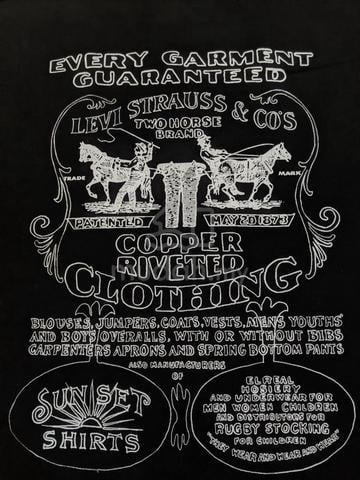 EVERY GARMENT
GUARANTEED
LEVI STRAUSS & CO'S
TWO HORSE
BRAND
TRADE MARK
PATENTED MAY 20 1873
COPPER
RIVETED
CLOTHING
BLOUSES, JUMPERS, COATS, VESTS, MENS YOUTHS'
AND BOYS OVERALLS, WITH OR WITHOUT BIBS
CARPENTERS APRONS AND SPRING BOTTOM PANTS
ALSO MANUFACTURERS
OF
SUNSET
SHIRTS
ELREAL
HOSIERY
AND UNDERWEAR FOR
MEN WOMEN CHILDREN
AND DISTRIBUTORS FOR
RUGBY STOCKING
FOR CHILDREN
"THEY WEAR AND WEAR AND WEAR"